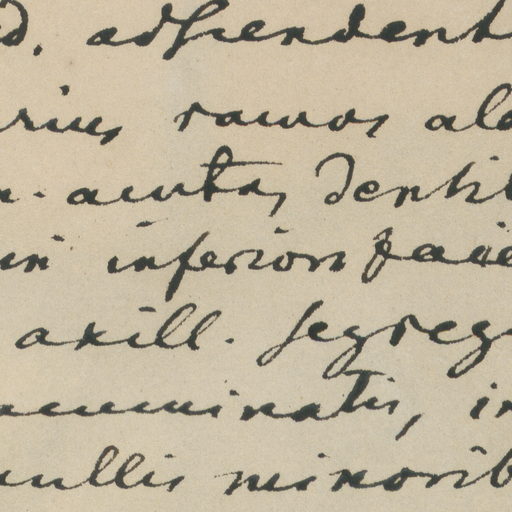 adscendent
ramos
acuta, denti
in inferiori facie
axill. segreg
acuminatis, in
nullis minorib